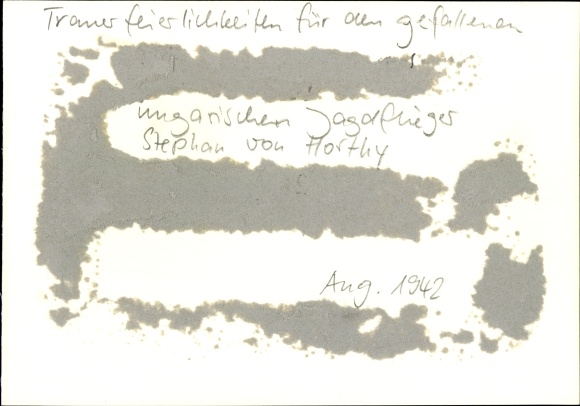 Trauerfeierlichkeiten für den gefallenen
ungarischen Jagdflieger
Stephan von Horthy
Aug. 1942